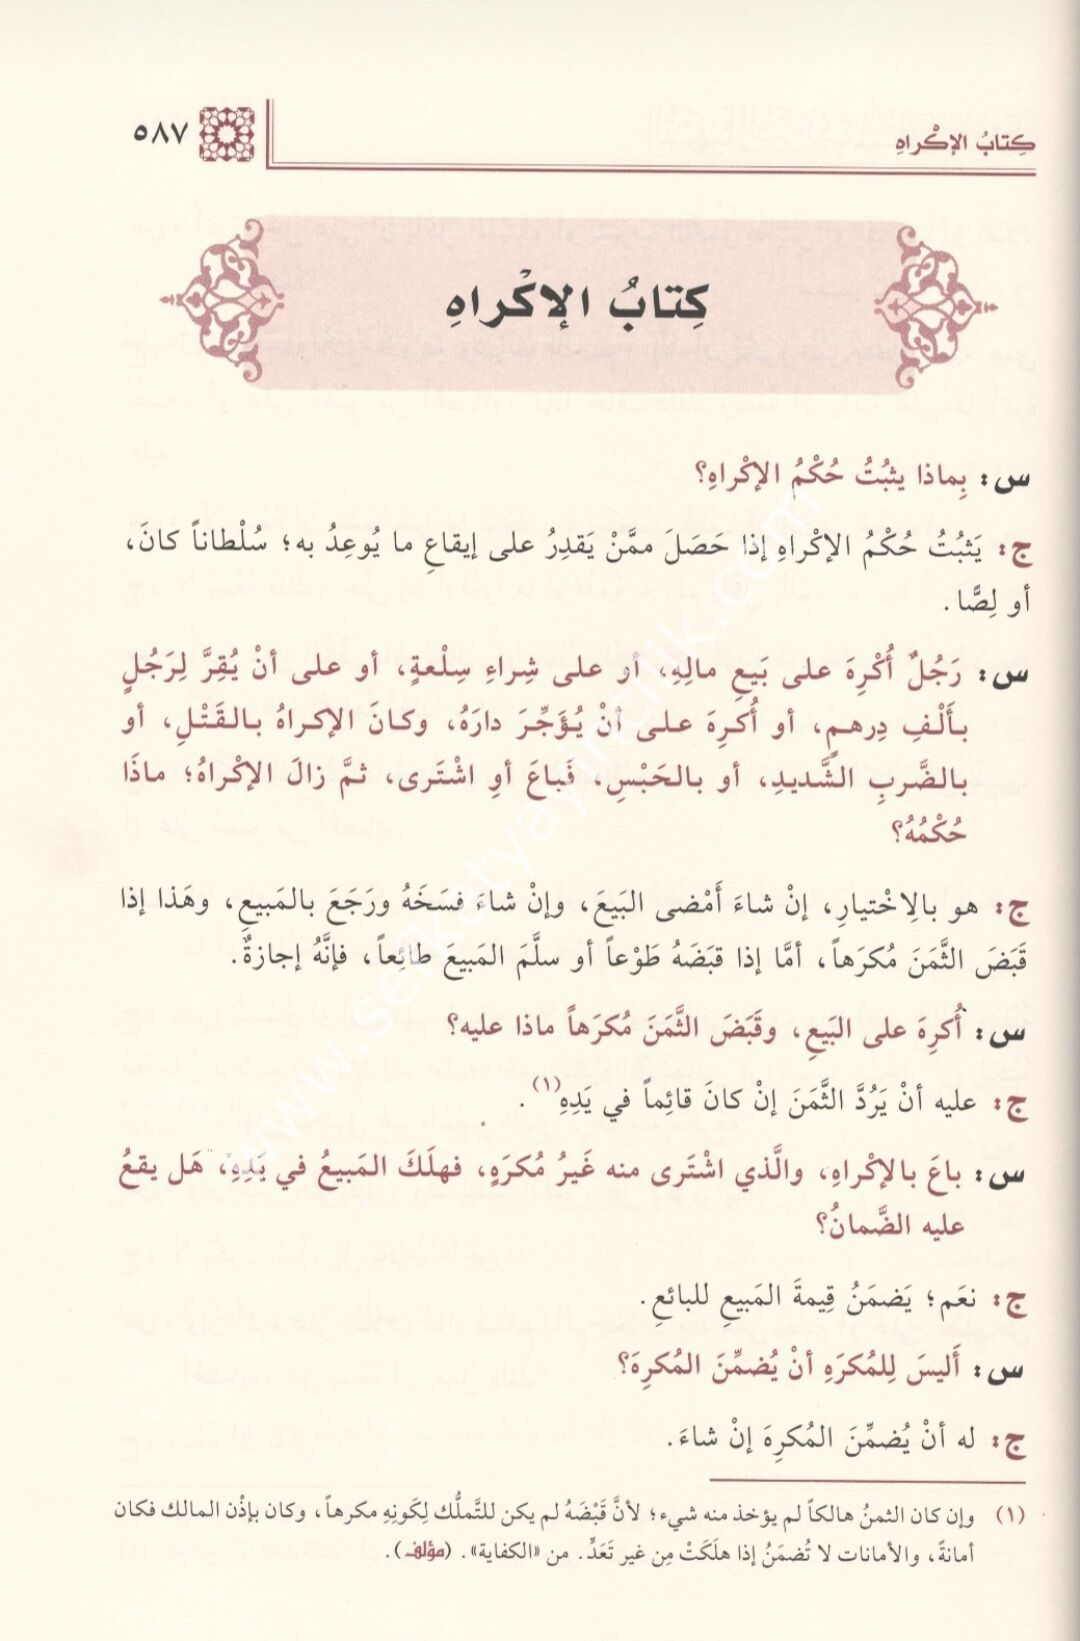 كِتابُ الإكْراهِ
٥٨٧
كِتابُ الإكْراهِ
س: بِماذا يثبُتُ حُكْمُ الإكْراهِ؟
ج: يَثبُتُ حُكْمُ الإكْراهِ إذا حَصَلَ ممَّنْ يَقدِرُ على إيقاعِ ما يُوعِدُ به؛ سُلْطاناً كانَ،
أو لِصًّا.
س: رَجُلٌ أُكْرِهَ على بَيعِ مالِهِ، أو على شِراءِ سِلْعةٍ، أو على أنْ يُقِرَّ لِرَجُلٍ
بأَلْفِ دِرهمٍ، أو أُكرِهَ على أنْ يُؤَجِّرَ دارَهُ، وكانَ الإكراهُ بالقَتْلِ، أو
بالضَّربِ الشَّديدِ، أو بالحَبْسِ، فَباعَ أوِ اشْتَرى، ثمَّ زالَ الإكْراهُ؛ ماذَا
حُكْمُهُ؟
ج: هو بالِاخْتيارِ، إنْ شاءَ أَمْضى البَيعَ، وإنْ شاءَ فسَخَهُ ورَجَعَ بالمَبيعِ، وهَذا إذا
قَبَضَ الثَّمَنَ مُكرَهاً، أمَّا إذا قبَضَهُ طَوْعاً أو سلَّمَ المَبيعَ طائِعاً، فإنَّهُ إجازةٌ.
س: أُكرِهَ على البَيعِ، وقَبَضَ الثَّمَنَ مُكرَهاً ماذا عليه؟
ج: عليه أنْ يَرُدَّ الثَّمَنَ إنْ كانَ قائِماً في يَدِهِ(١).
س: باعَ بالإكْراهِ، والَّذي اشْتَرى منه غَيرُ مُكرَهٍ، فهلَكَ المَبيعُ في يَدِهِ، هَل يقعُ
عليه الضَّمانُ؟
ج: نعَم؛ يَضمَنُ قِيمةَ المَبيعِ للبائعِ.
س: أَليسَ لِلمُكرَهِ أنْ يُضمِّنَ المُكرِهَ؟
ج: له أنْ يُضمِّنَ المُكرِهَ إنْ شاءَ.
(١) وإن كان الثمنُ هالكاً لم يؤخذ منه شيء؛ لأنَّ قَبْضَهُ لم يكن للتَّملُّك لِكَونِهِ مكرهاً، وكان بإذْن المالك فكان
أمانةً، والأمانات لا تُضمَنُ إذا هلَكَتْ مِن غير تَعَدٍّ. من «الكفاية». (مؤلف).